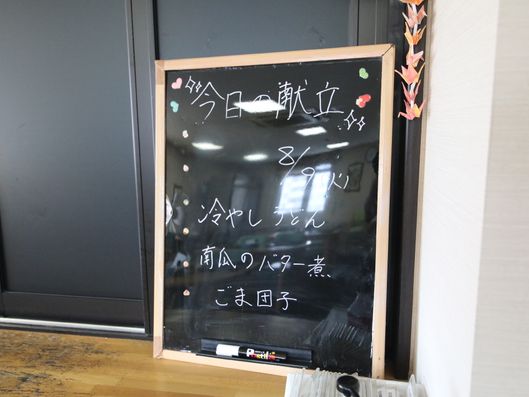 今日の献立
8/9(火)
冷やしうどん
南瓜のバター煮
ごま団子